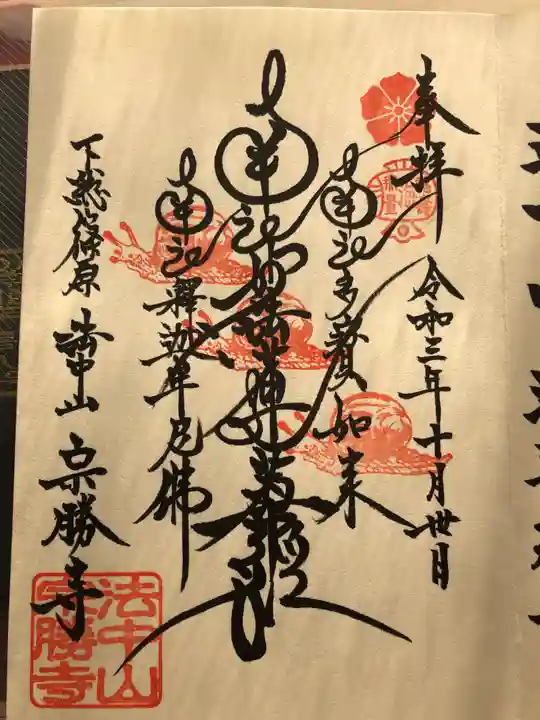 奉拝
令和三年十月卅日
南無多寳如来
南無妙法蓮華経
南無釋迦牟尼佛
下総篠原 法中山 宗勝寺
法中山
宗勝寺